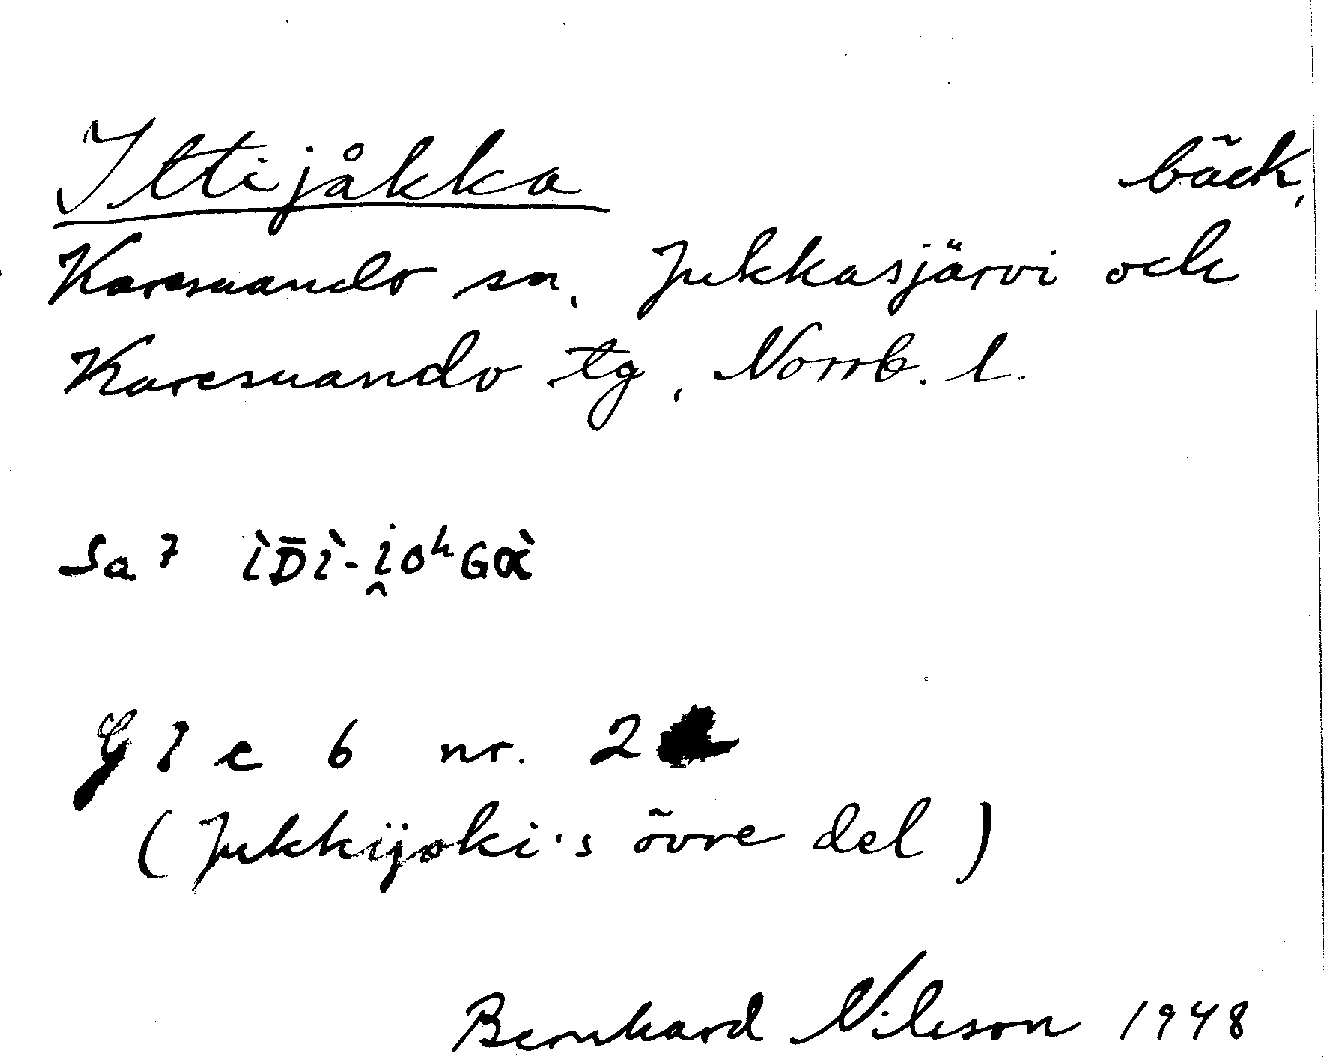 Ittijåkka bäck,
Karesuando sn, Jukkasjärvi och
Karesuando tg, Norrb. l.
Sa 7 ìD̄ì-i̯oʰGὰ
G l c 6 nr. 2
(Jukkijoki's övre del)
Bernhard Nilsson 1948